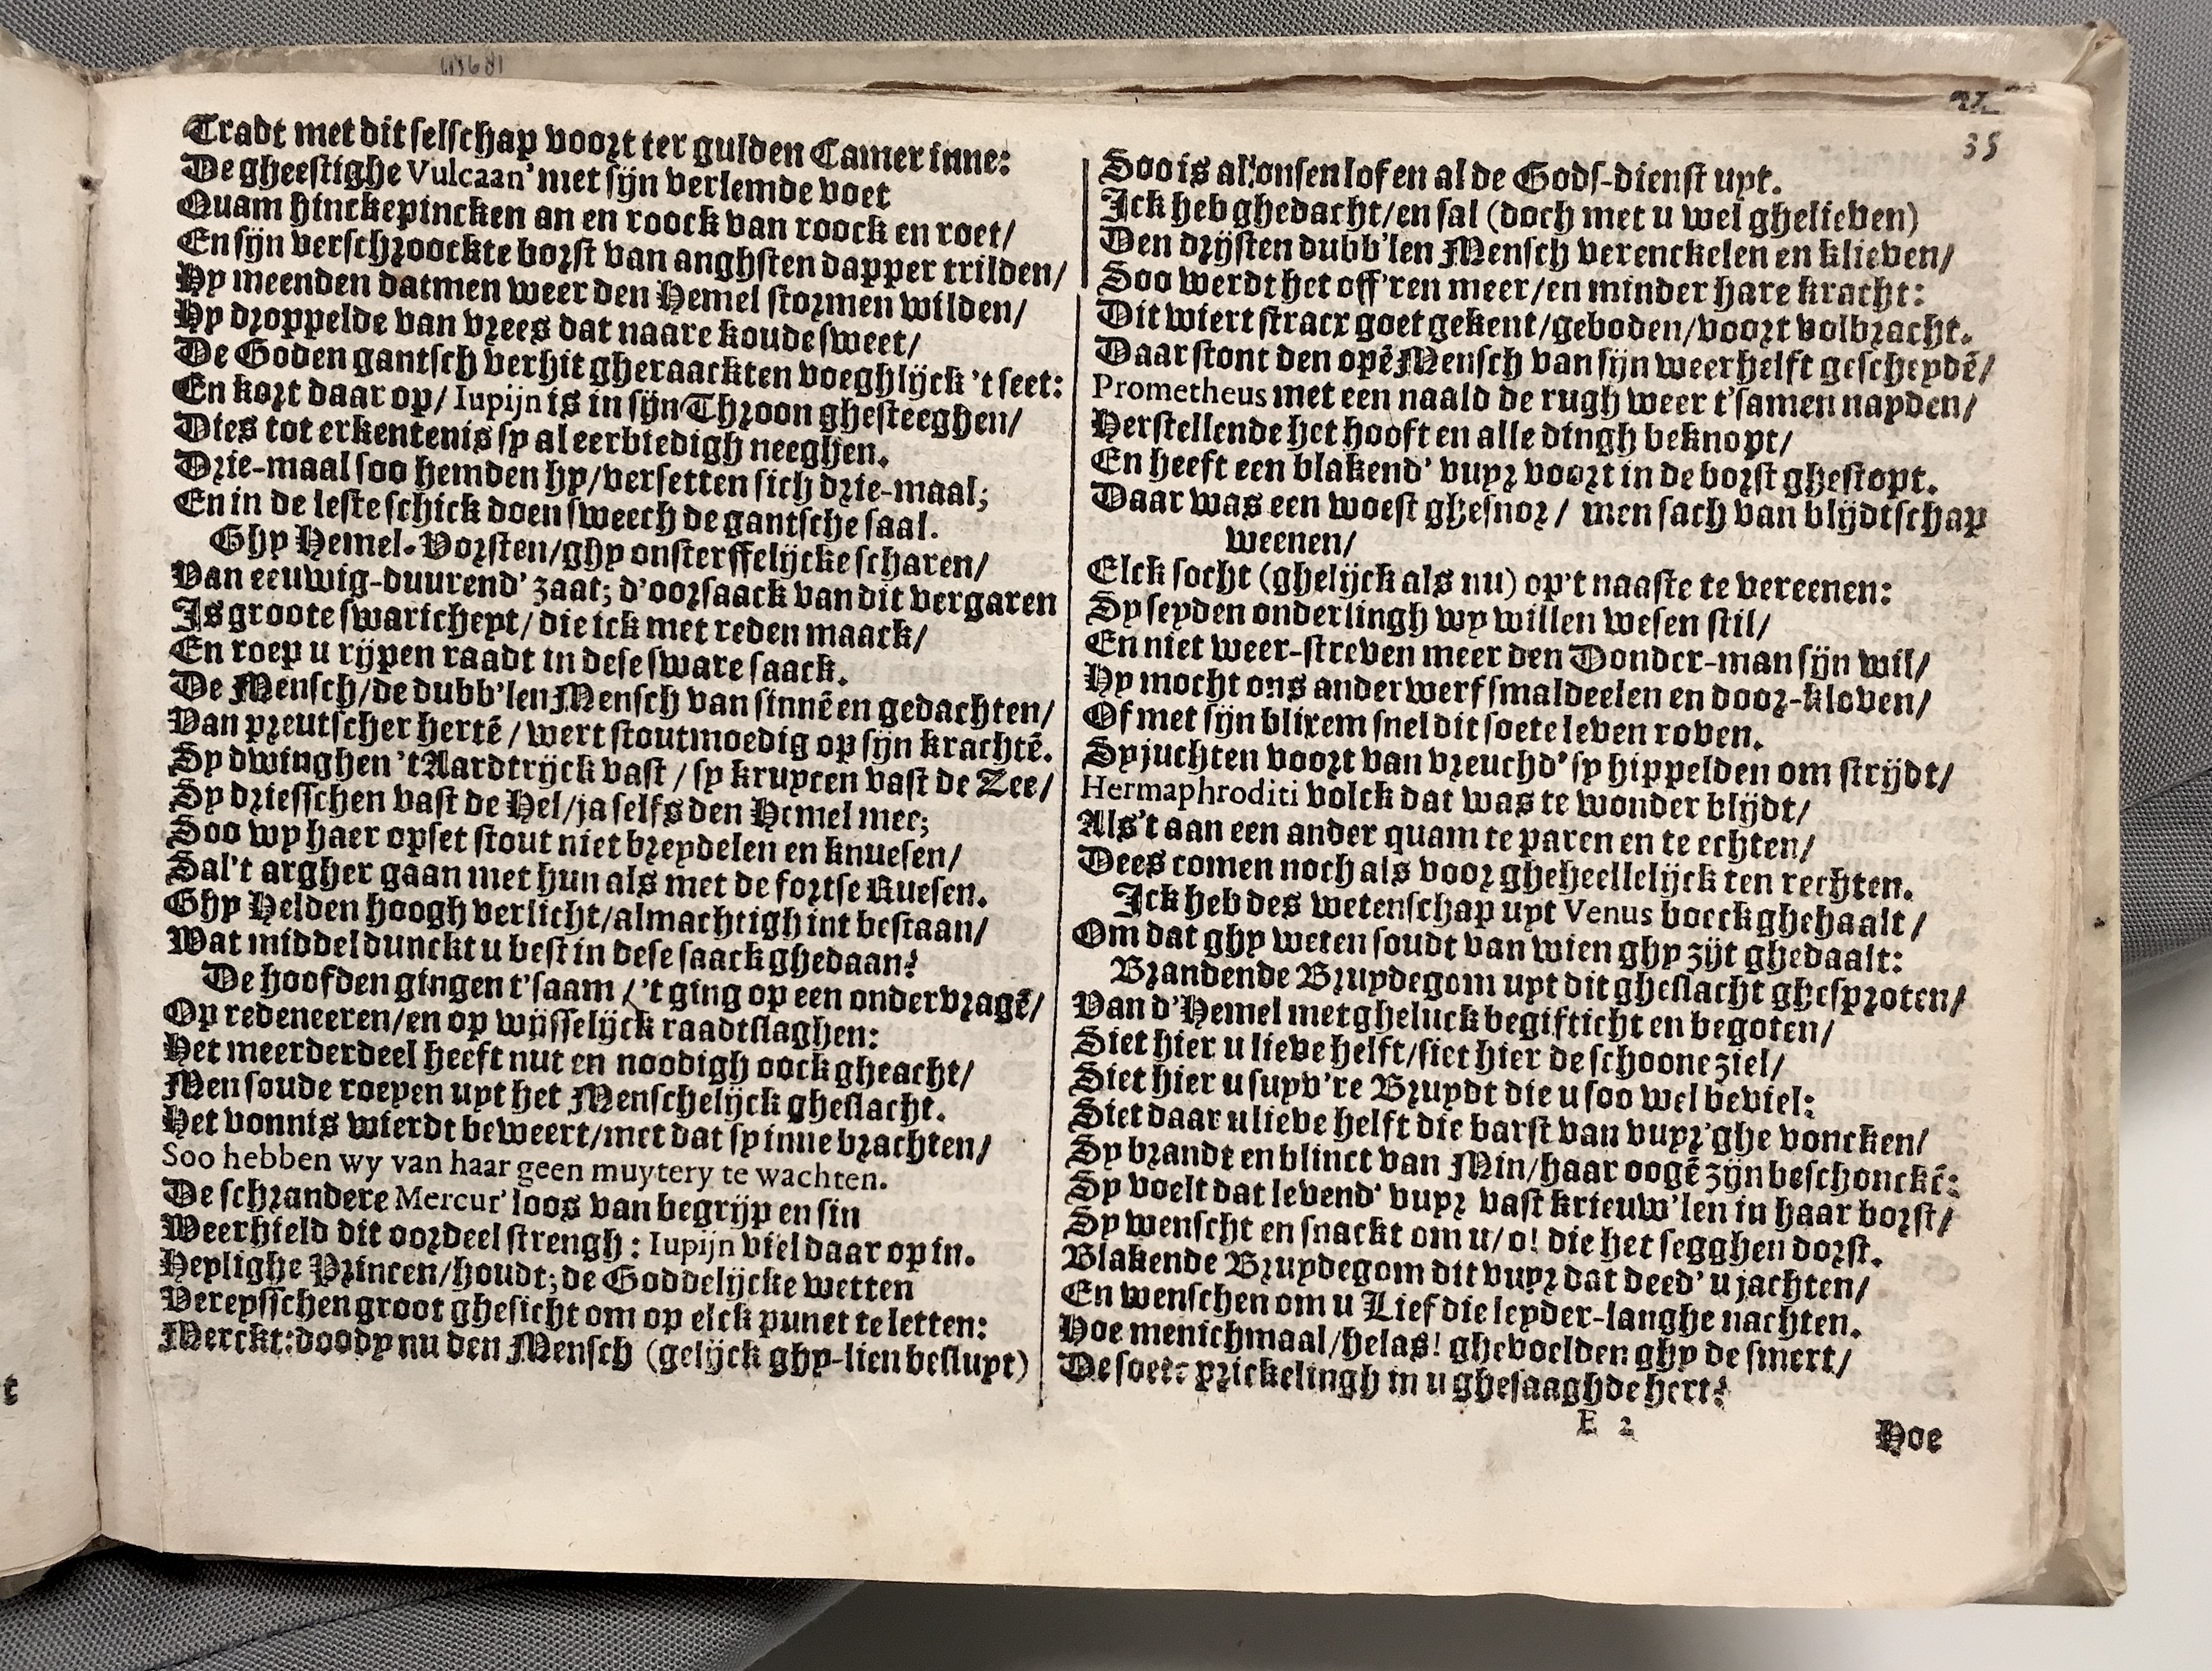 43681
35
Tradt met dit selschap voort ter gulden Camer inne:
De gheestighe Vulcaan' met sijn verlemde voet
Quam hinckepincken an en roock van roock en roet/
En sijn verschroockte borst van anghsten dapper trilden/
Hy meenden datmen weer den Hemel stormen wilden/
Hy droppelde van vrees dat naare koude sweet/
De Goden gantsch verhit gheraackten voeghlijck 't seet:
En kort daar op/ Iupijn is in sijn Throon ghesteeghen/
Dies tot erkentenis sy al eerbiedigh neeghen.
Drie-maal soo hemden hy/versetten sich drie-maal;
En in de leste schick doen sweech de gantsche saal.
Ghy Hemel-Vorsten/ghy onsterffelijcke scharen/
Van eeuwig-duurend' zaat; d'oorsaack van dit vergaren
Is groote swaricheyt/ die ick met reden maack/
En roep u rijpen raadt in dese sware saack.
De Mensch/de dubb'len Mensch van sinnē en gedachten/
Van preutscher hertē/ wert stoutmoedig op sijn krachtē.
Sy dwinghen 't Aardtrijck vast/ sy kruycen vast de Zee/
Sy driesschen vast de Hel/ja selfs den Hemel mee;
Soo wy haer opset stout niet breydelen en knuesen/
Sal't argher gaan met hun als met de fortse Ruesen.
Ghy Helden hoogh verlicht/almachtigh int bestaan/
Wat middel dunckt u best in dese saack ghedaan?
De hoofden gingen t'saam/ 't ging op een ondervragē/
Op redeneeren/en op wijsselijck raadtslaghen:
Het meerderdeel heeft nut en noodigh oock gheacht/
Men soude roepen uyt het Menschelijck gheslacht.
Het vonnis wierdt beweert/met dat sy inne brachten/
Soo hebben wy van haar geen muytery te wachten.
De schrandere Mercur' loos van begrijp en sin
Weerhield dit oordeel strengh: Iupijn viel daar op in.
Heylighe Princen/houdt; de Goddelijcke wetten
Vereysschen groot ghesicht om op elck punct te letten:
Merckt: doody nu den Mensch (gelijck ghy-lien besluyt)
Soo is al onsen lof en al de Gods-dienst uyt.
Ick heb ghedacht/en sal (doch met u wel ghelieven)
Den drijsten dubb'len Mensch verenckelen en klieven/
Soo werdt het off'ren meer/en minder hare kracht:
Dit wiert stracx goet gekent/geboden/voort volbracht.
Daar stont den opē Mensch van sijn weerhelft gescheydē/
Prometheus met een naald de rugh weer t'samen nayden/
Herstellende het hooft en alle dingh beknopt/
En heeft een blakend' vuyr voort in de borst ghestopt.
Daar was een woest ghesnor/ men sach van blijdtschap
weenen/
Elck socht (ghelijck als nu) op't naaste te vereenen:
Sy seyden onderlingh wy willen wesen stil/
En niet weer-streven meer den Donder-man sijn wil/
Hy mocht ons anderwerf smaldeelen en door-kloven/
Of met sijn blixem snel dit soete leven roven.
Sy juchten voort van vreuchd' sy hippelden om strijdt/
Hermaphroditi volck dat was te wonder blijdt/
Als't aan een ander quam te paren en te echten/
Dees comen noch als voor gheheellelijck ten rechten.
Ick heb des wetenschap uyt Venus boeck ghehaalt/
Om dat ghy weten soudt van wien ghy zijt ghedaalt:
Brandende Bruydegom uyt dit gheslacht ghesproten/
Van d'Hemel met gheluck begifticht en begoten/
Siet hier u lieve helft/siet hier de schoone ziel/
Siet hier u suyv're Bruydt die u soo wel beviel:
Siet daar u lieve helft die barst van vuyr'ghe voncken/
Sy brandt en blinct van Min/haar oogē zijn beschonckē:
Sy voelt dat levend' vuyr vast krieuw'len in haar borst/
Sy wenscht en snackt om u/o! die het segghen dorst.
Blakende Bruydegom dit vuyr dat deed' u jachten/
En wenschen om u Lief die leyder-langhe nachten.
Hoe menichmaal/helas! ghevoelden ghy de smert/
De soete prickelingh in u ghesaaghde hert?
E 2
Hoe